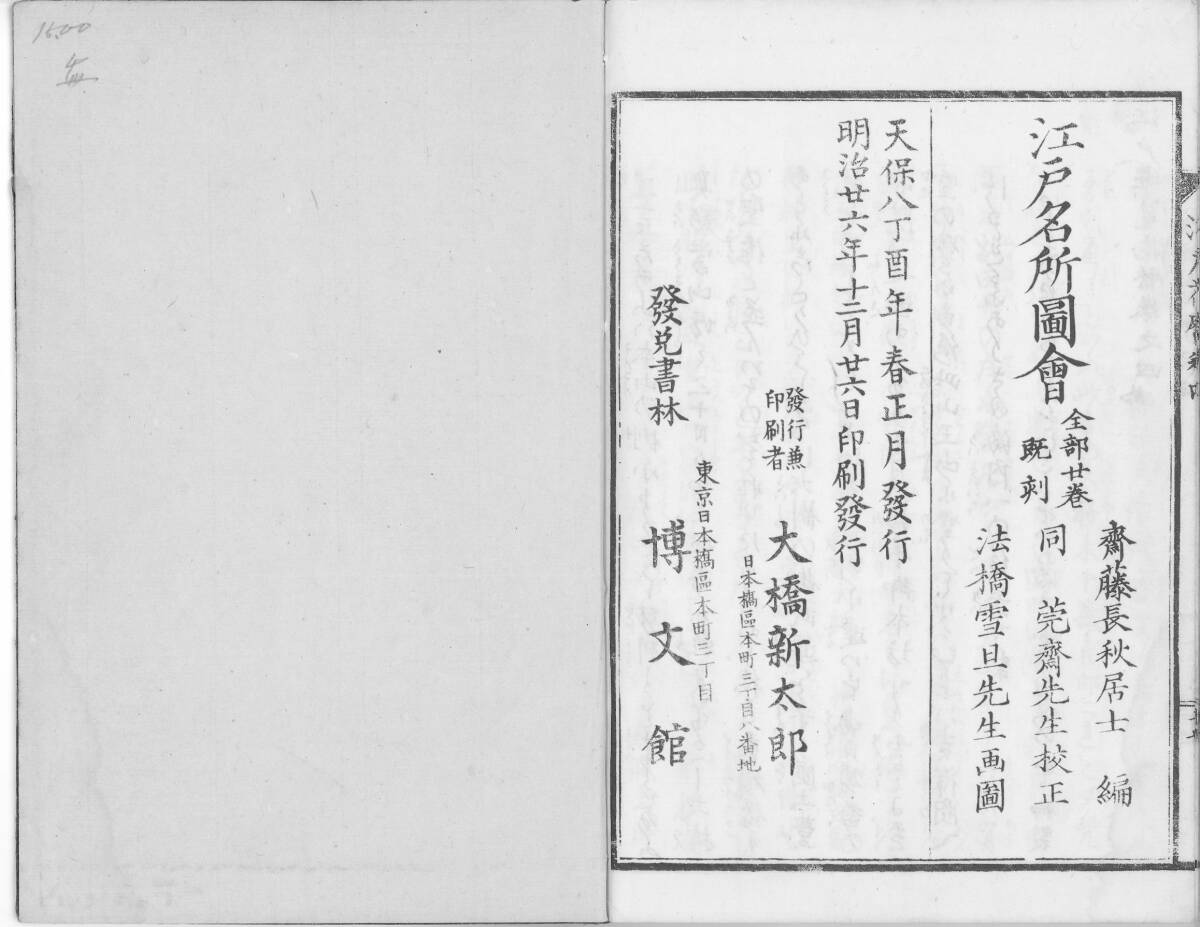 江戸名所圖會
全部廿巻
既刻
齋藤長秋居士 編
同 莞齋先生校正
法橋雪旦先生画圖
天保八丁酉年春正月發行
明治廿六年十二月廿六日印刷發行
發行兼
印刷者
大橋新太郎
日本橋區本町三丁目八番地
東京日本橋區本町三丁目
發兌書林
博文館
1500